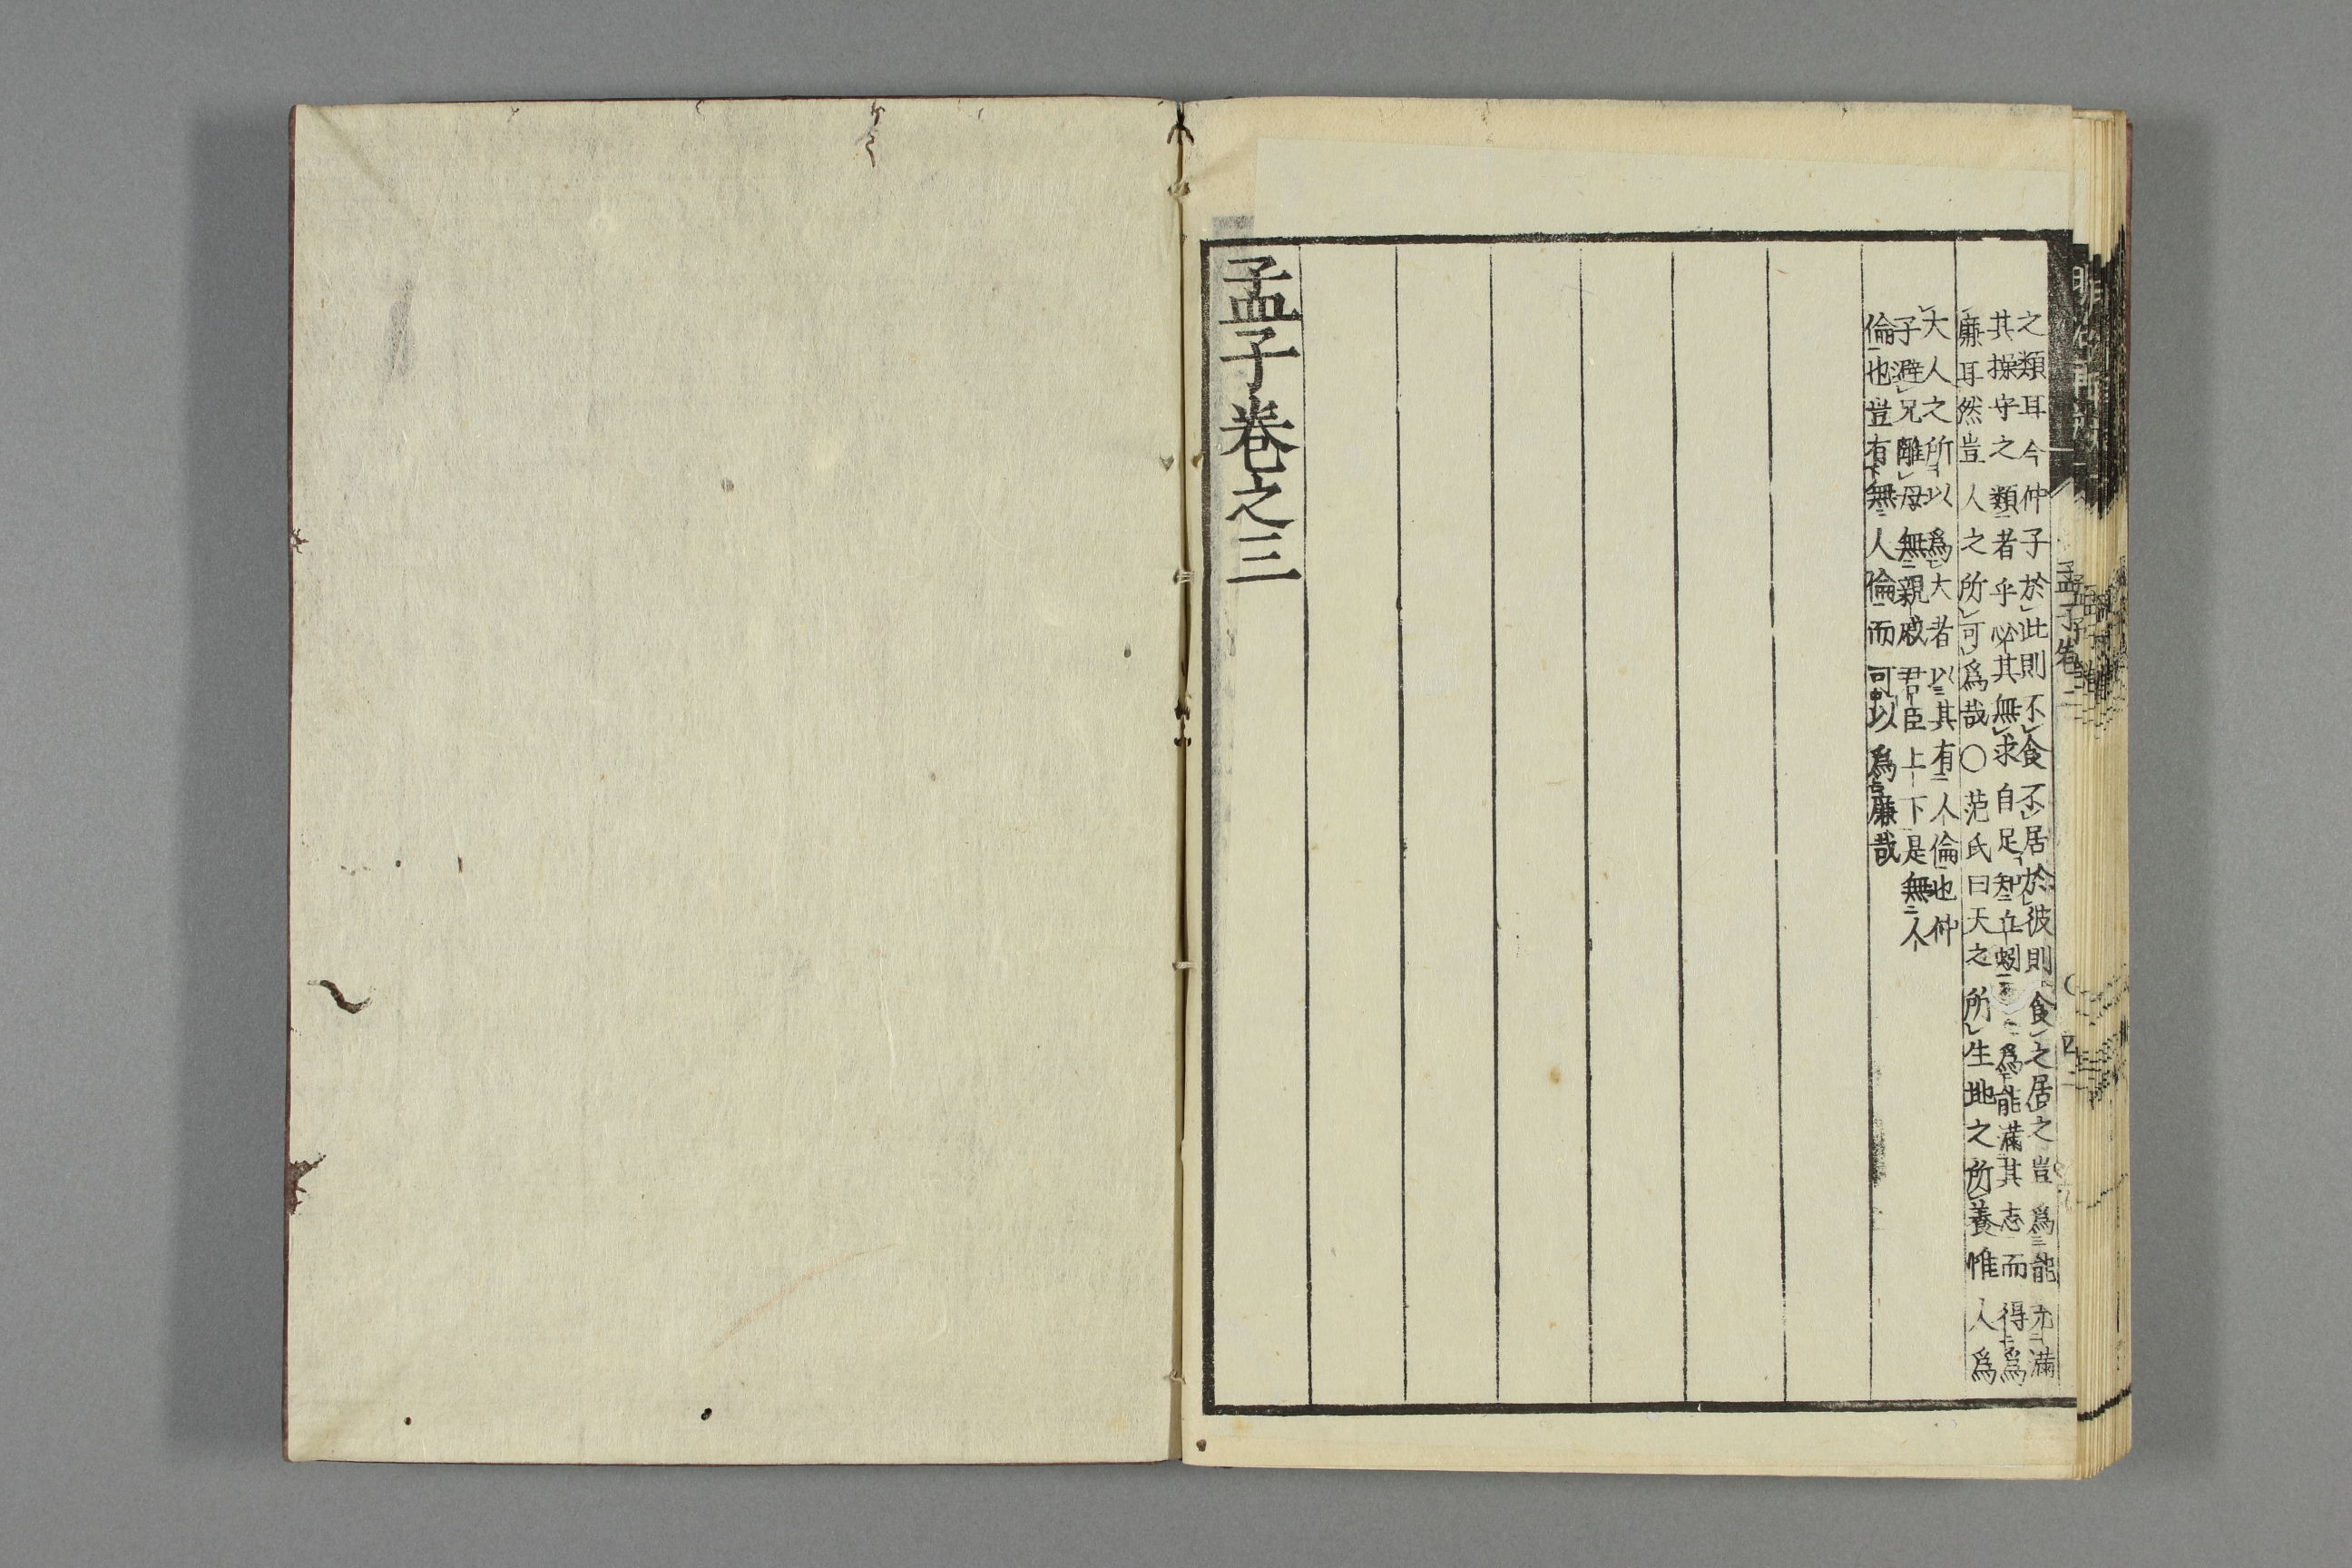 之類耳今仲子於此則不食不居於彼則食之居之豈爲能充滿
其操守之類者乎必其無求自足如丘蚓然乃爲能滿其志而得爲
廉耳然豈人之所可爲哉○范氏曰天之所生地之所養惟人爲
大人之所以爲大者以其有人倫也仲
子避兄離母無親戚君臣上下是無人
倫也豈有無人倫而可以爲廉哉
孟子卷之三
孟子卷